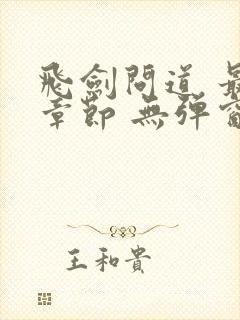 飛劍問道 最
章節 無彈窗
王和貴